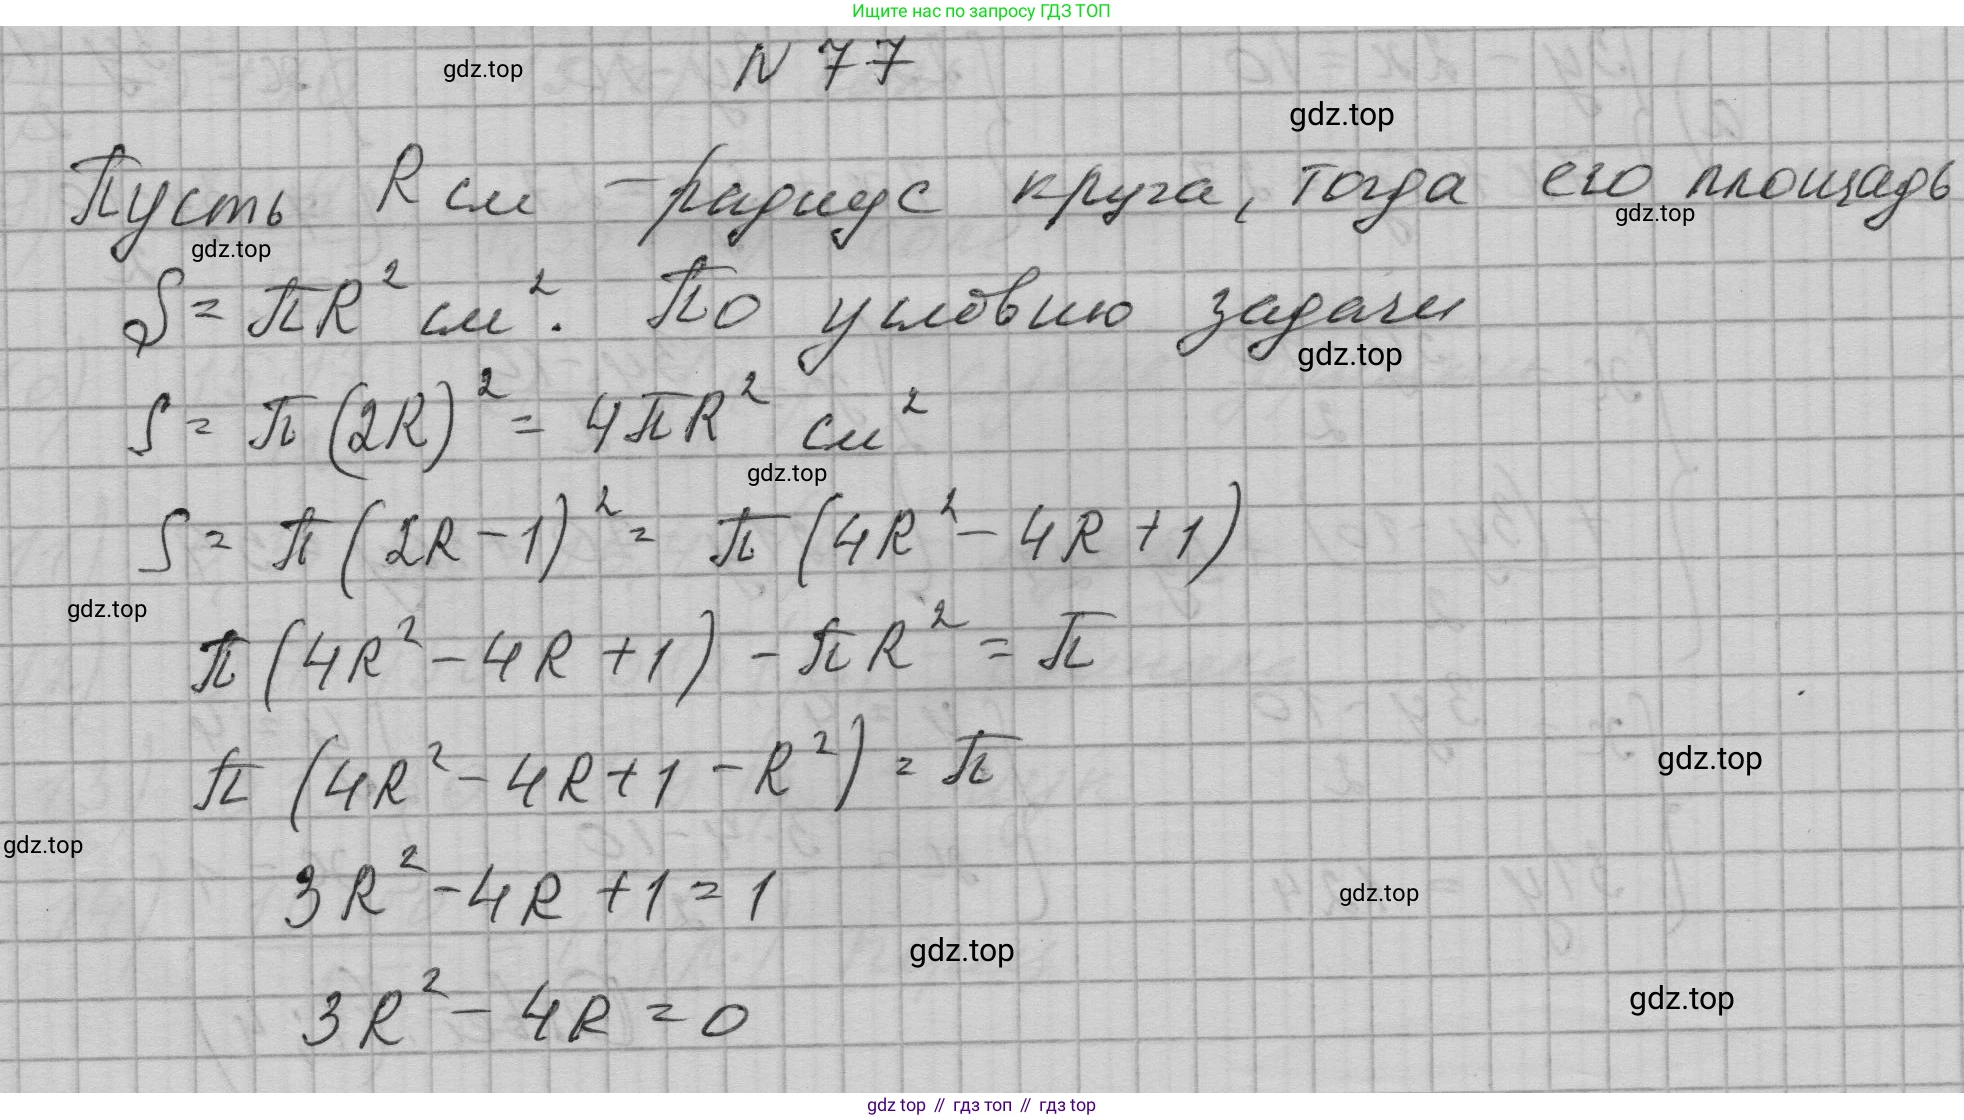 Ищите нас по запросу ГДЗ ТОП
N 77
gdz.top
gdz.top
Пусть R см – радиус круга, тогда его площадь
gdz.top
gdz.top
S = πR² см². По условию задачи
gdz.top
S = π(2R)² = 4πR² см²
gdz.top
S = π(2R – 1)² = π(4R² – 4R + 1)
gdz.top
π(4R² – 4R + 1) – πR² = π
π(4R² – 4R + 1 – R²) = π
gdz.top
gdz.top
3R² – 4R + 1 = 1
gdz.top
gdz.top
3R² – 4R = 0
gdz.top
gdz top // гдз топ // гдз top